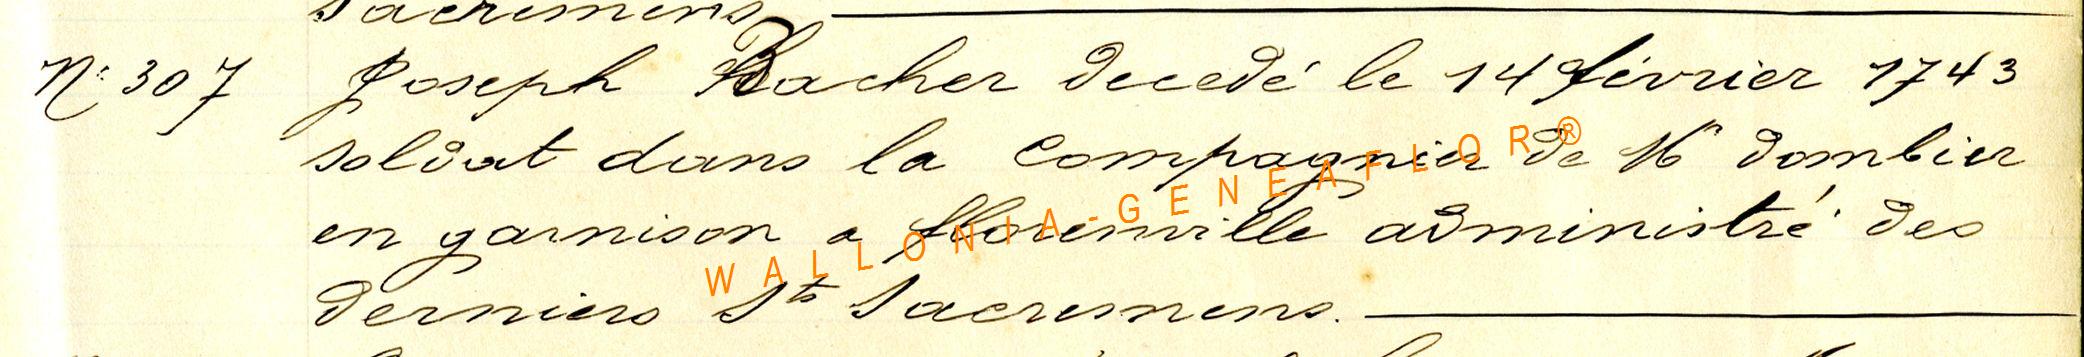 sacremens.
N° 307 Joseph Bacher decedé le 14 février 1743
soldat dans la Compagnie de Mr dombier
en garnison a florenville administré des
derniers Sts Sacremens.
WALLONIA-GENEAFLOR®